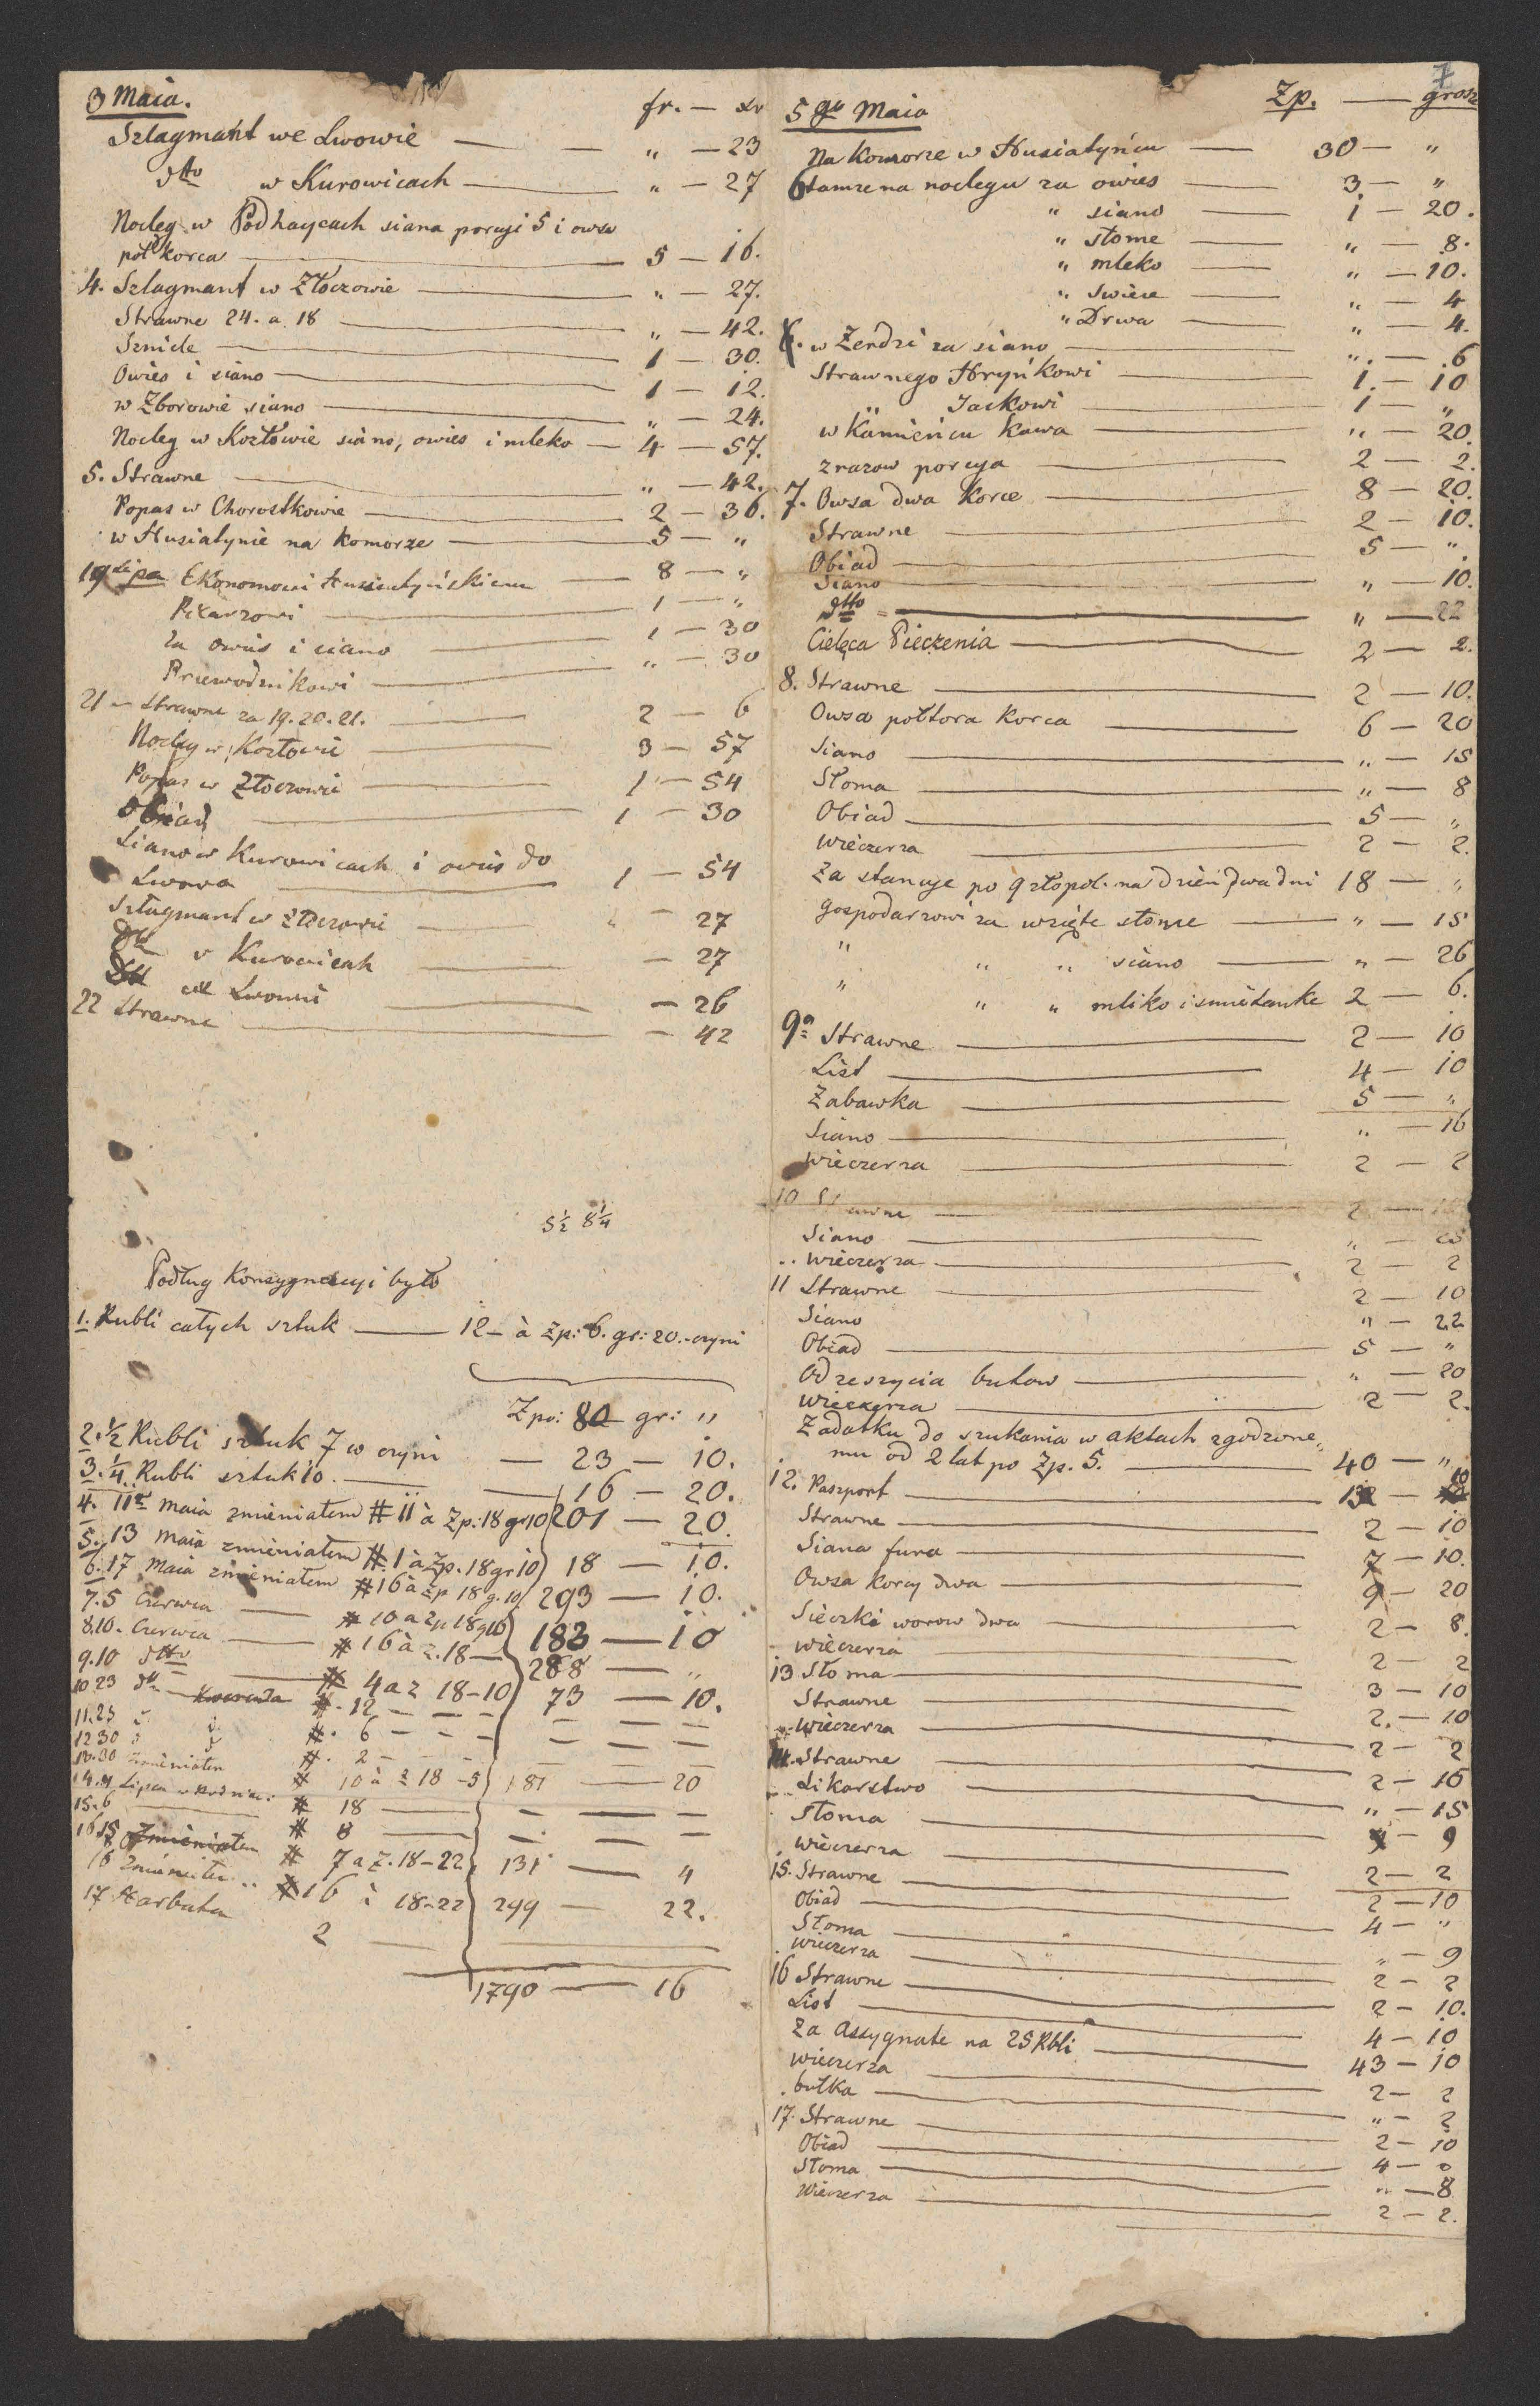 3 Maia. fr. — xr
Szlagmant we Lwowie — — „ — 23
dtto w Kurowicach — „ — 27
Nocleg w Podhaycach siana porcyi 5 i owsa
pół korca — 5 — 16.
4. Szlagmant w Złoczowie — „ — 27.
Strawne 24. a 18 — „ — 42.
Sznicle — 1 — 30.
Owies i siano — 1 — 12.
w Zborowie siano — „ — 24.
Nocleg w Kozłowie siano, owies i mleko — 4 — 57.
5. Strawne — „ — 42.
Popas w Chorostkowie — 2 — 36.
w Husiatynie na komorze — 5 — „
19 Lipa Ekonomowi Husiatyńskiemu — 8 — „
Pisarzowi — 1 — „
za owies i siano — 1 — 30
Przewodnikowi — „ — 30
21 — Strawne za 19. 20. 21. — 2 — 6
Nocleg w Kozłowie — 3 — 57
Popas w Złoczowie — 1 — 54
Obiad — 1 — 30
Siano w Kurowicach i owies do
Lwowa — 1 — 54
Szlagmant w Złoczowie — „ — 27
w Kurowicach — — 27
we Lwowie — — 26
22 Strawne — — 42
5½ 8¼
Podług Konsygnacyi było
1. Rubli całych sztuk — 12 — à Zp: 6. gr: 20. — czyni
Zpo: 80 gr: „
2. ½ Rubli sztuk 7 w czyni — 23 — 10.
3. ¼ Rubli sztuk 10. — 16 — 20.
4. 11go maia zmieniałem # 11 à Zp: 18 gr 10 201 — 20.
5. 13 maia zmieniałem # 1 à Zp. 18 gr 10 18 — 10.
6. 17 Maia zmieniałem # 16 à zp 18 g. 10 293 — 10.
7. 5 Czerwca — # 10 a zp 18 g 10 183 — 10
8. 10. Czerwca — # 16 à z. 18 — 288 — „
9. 10 dtto — # 4 a z 18 — 10 73 — 10.
10 23 dtto — # . 12 — — — — — —
11. 23 # . 6 — — — — — —
12 30 # . 2 —
13. 30 Zmieniałem # 10 à z 18 — 5 181 — 20
14. 4 Lipca # 18 — — — —
15. 6 # 8 — — — —
16 15 Zmieniałem # 7 a z. 18 — 22 131 — 4
16 Zmieniałem .. # 16 à 18 — 22 299 — 22.
17 Harbata 2 —
1790 — 16
7
5go Maia Zp. — grosz
Na Komorze w Husiatyńcu — 30 — „
6 tamże na noclegu za owies — 3. — „
„ siano — 1 — 20.
„ słome — „ — 8.
„ mleko — „ — 10.
„ świece — „ — 4
„ Drwa — „ — 4.
6. w Żerdzi za siano — „ . — . 6
Strawnego Hryńkowi — 1. — 10
„ Jackowi — 1 — „
w Kamieńcu Kawa — „ — 20.
zrazow porcya — 2 — 2.
7. Owsa dwa Korce — 8 — 20.
Strawne — 2 — 10.
Obiad — 5 — „.
Siano — „ — 10.
dtto — „ — 22
Cielęca Pieczenia — 2 — 2.
8. Strawne — 2 — 10.
Owsa połtora Korca — 6 — 20
Siano — „ — 15
Słoma — „ — 8
Obiad — 5 — „
Wieczerza — 2 — 2.
Za stancye po 9 złopol. na dzień dwa dni 18 — „
Gospodarzowi za wzięte słome — „ — 15
„ „ „ siano — „ — 26
„ „ „ mliko i smietanke 2 — 6.
9a Strawne — 2 — 10
List — 4 — 10
Zabawka — 5 — „
Siano — „ — 16
Wieczerza — 2 — 2
10 Strawne — 2 —
Siano — „ —
.. Wieczerza — 2 — 2
11 Strawne — 2 — 10
Siano — „ — 22
Obiad — 5 — „
Od zeszycia butow — „ — 20
Wieczerza — 2 — 2.
Zadatku do szukania w aktach zgodzone„
mu od 2 lat po Zp. 5. — 40 — „
12. Paszport — 13 — 10
Strawne — 2 — 10
Siana fura — 7 — 10.
Owsa korcy dwa — 9 — 20
Sieczki worow dwa — 2 — 8.
Wieczerza — 2 — 2
13 Słoma — 3 — 10
Strawne — 2. — 10
Wieczerza — 2 — 2
14. Strawne — 2 — 10
Likarstwo — „ — 15
Słoma — — 9
Wieczerza — 2 — 2
15. Strawne — 2 — 10
Obiad — 4 — „
Słoma — „ — 9
Wieczerza — 2 — 2
16 Strawne — 2 — 10.
List — 4 — 10
Za Assygnate na 25 Rbli — 43 — 10
Wieczerza — 2 — 2
. bułka — „ — 2
17. Strawne — 2 — 10
Obiad — 4 — „
Słoma — „ — 8
Wieczerza — 2 — 2.